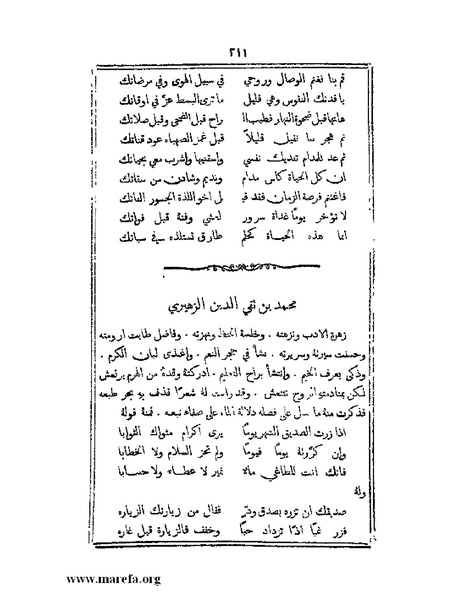 ٢١١
قم بنا نغنم الوصال وروحي في سبيل الهوى وفي مرضاتك
يا فدتك النفوس وهي قليل ما ترى البسط عزّ في اوقاتك
هاتها قبل ضحوة النهار راح قبل الضحى وقبل صلاتك
ثم هجر بنا نقيل قليلاً قبل غمز الصهباء عود قناتك
ثم عد للمدام تفديك نفسي واسقنيها واشرب معي بحياتك
ان كل الحياة كاس مدام ونديم وشادن من سقاتك
فاغتنم فرصة الزمان فقد اخو اللذة الجسور الفاتك
لا تؤخر يومًا غداة سرور وقبل فواتك
انما هذه الحياة كحلم طارق تستلذه في سباتك
محمد بن تقي الدين الزهيري
زهرة الادب ونزهته . وخلسة الحظ ونهزته . وفاضل طابت ارومته
وحسنت سيرته وسريرته . نشأ في حجر النعم . واغتذى لبان الكرم .
وذكى بعرف الخيم . وانتشأ براح النعيم . ادركته وقده من الهرم يرتعش
لكن بمنادمته الروح تنتعش . وقد رأيت له شعرًا قذف به بحر طبعه
فذكرت منه ما يدل على فضله دلالة الماء على صفاء نبعه . فمنه قوله
اذا زرت الصديق الشهر يومًا يرى اكرام مثواك الثوابا
وان كررته يومًا فيومًا ولم تحز السلام ولا الخطابا
فانك انت للطاغي تمر لا عطاء ولا حسابا
وله
صديقك ان تزره بصدق ودّ فقال من زيارتك الزياره
فزر غبًا اذا تزداد حبًا وخفف فالزيارة قبل غاره
www.marefa.org